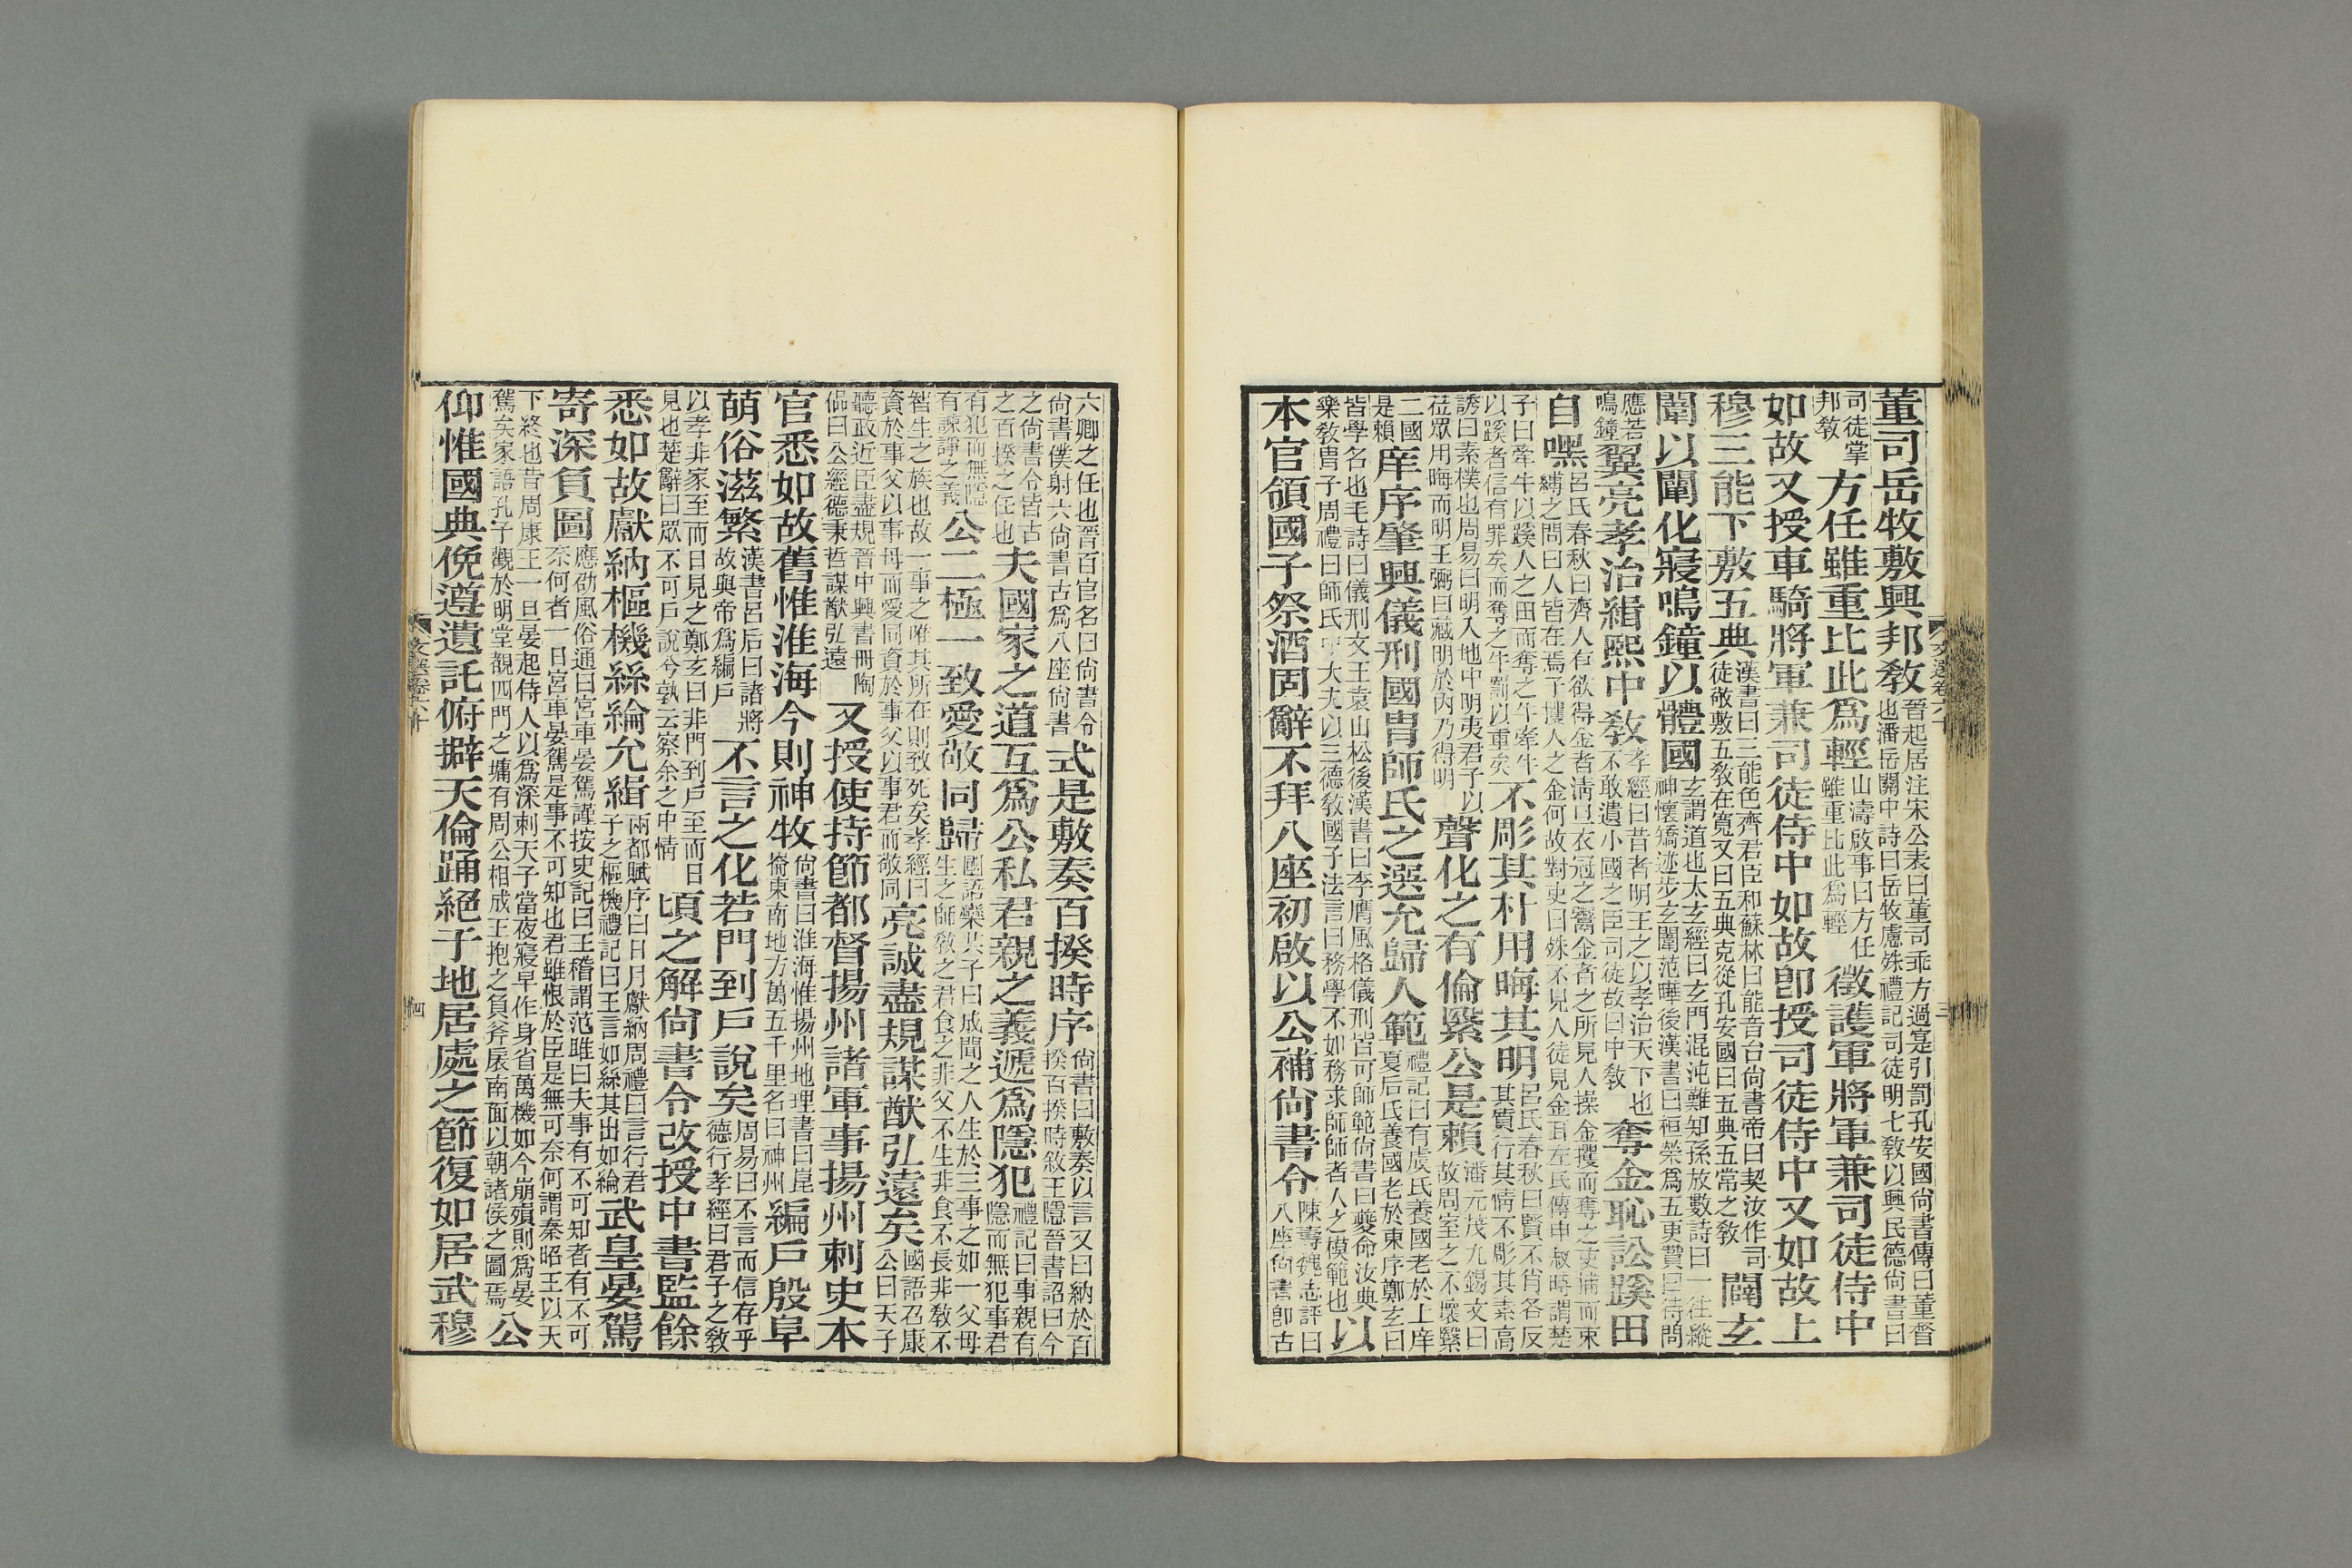 董司岳牧敷興邦敎晉起居注宋公表曰董司乖方過寔引罰孔安國尙書傳曰董督
也潘岳關中詩曰岳牧慮殊禮記司徒明七敎以興民德尙書曰
司徒掌邦敎方任雖重比此爲輕山濤啟事曰方任雖重比此爲輕徵護軍將軍兼司徒侍中
如故又授車騎將軍兼司徒侍中如故卽授司徒侍中又如故上
穆三能下敷五典漢書曰三能色齊君臣和蘇林曰能音台尙書帝曰契汝作司徒敬敷五敎在寬又曰五典克從孔安國曰五典五常之敎闢玄
闈以闡化寢鳴鐘以體國玄謂道也太玄經曰玄門混沌難知孫放數詩曰一往縱神懷矯迹步玄闈范曄後漢書曰桓榮爲五更贊曰待問
應若鳴鐘翼亮孝治緝熙中敎孝經曰昔者明王之以孝治天下也不敢遺小國之臣司徒故曰中敎奪金恥訟蹊田
自嘿呂氏春秋曰齊人有欲得金者淸旦衣冠之鬻金者之所見人操金攫而奪之吏捕而束縛之問曰人皆在焉子攫人之金何故對吏曰殊不見人徒見金耳左氏傳申叔時謂楚
子曰牽牛以蹊人之田而奪之牛牽牛以蹊者信有罪矣而奪之牛罰以重矣不彫其朴用晦其明呂氏春秋曰賢不肖各反其質行其情不彫其素高
誘曰素樸也周易曰明入地中明夷君子以莅眾用晦而明王弼曰藏明於內乃得明聲化之有倫繄公是賴潘元茂九錫文曰故周室之不壞繄
二國是賴庠序肇興儀刑國胄師氏之選允歸人範禮記曰有虞氏養國老於上庠夏后氏養國老於東序鄭玄曰
皆學名也毛詩曰儀刑文王袁山松後漢書曰李膺風格儀刑皆可師範尙書曰夔命汝典樂敎胄子周禮曰師氏中大夫以三德敎國子法言曰務學不如務求師師者人之模範也以
本官領國子祭酒固辭不拜八座初啟以公補尙書令陳壽魏志評曰八座尙書卽古
文選卷六十
三
六卿之任也晉百官名曰尙書令尙書僕射六尙書古爲八座尙書式是敷奏百揆時序尙書曰敷奏以言又曰納於百揆百揆時敘王隱晉書詔曰今
之尙書令皆古之百揆之任也夫國家之道互爲公私君親之義遞爲隱犯禮記曰事親有隱而無犯事君
有犯而無隱有諫諍之義公二極一致愛敬同歸國語欒共子曰成聞之人生於三事之如一父母生之師敎之君食之非父不生非食不長非敎不
智生之族也故一事之唯其所在則致死矣孝經曰資於事父以事母而愛同資於事父以事君而敬同亮誠盡規謀猷弘遠矣國語召康公曰天子
聽政近臣盡規晉中興書冊陶侃曰公經德秉哲謀猷弘遠又授使持節都督揚州諸軍事揚州刺史本
官悉如故舊惟淮海今則神牧尙書曰淮海惟揚州地理書曰崑崙東南地方萬五千里名曰神州編戶殷阜
萌俗滋繁漢書呂后曰諸將故與帝爲編戶不言之化若門到戶說矣周易曰不言而信存乎德行孝經曰君子之敎
以孝非家至而日見之鄭玄曰非門到戶至而日見也楚辭曰眾不可戶說兮孰云察余之中情頃之解尙書令改授中書監餘
悉如故獻納樞機絲綸允緝兩都賦序曰日月獻納周禮曰言行君子之樞機禮記曰王言如絲其出如綸武皇晏駕
寄深負圖應劭風俗通曰宮車晏駕謹按史記曰王稽謂范雎曰夫事有不可知者有不可奈何者一日宮車晏駕是事不可知也君雖恨於臣是無可奈何謂秦昭王以天
下終也昔周康王一旦晏起侍人以爲深刺天子當夜寢早作身省萬機如今崩殞則爲晏駕矣家語孔子觀於明堂覩四門之墉有周公相成王抱之負斧扆南面以朝諸侯之圖焉公
仰惟國典俛遵遺託俯擗天倫踊絕于地居處之節復如居武穆
文選卷六十
四